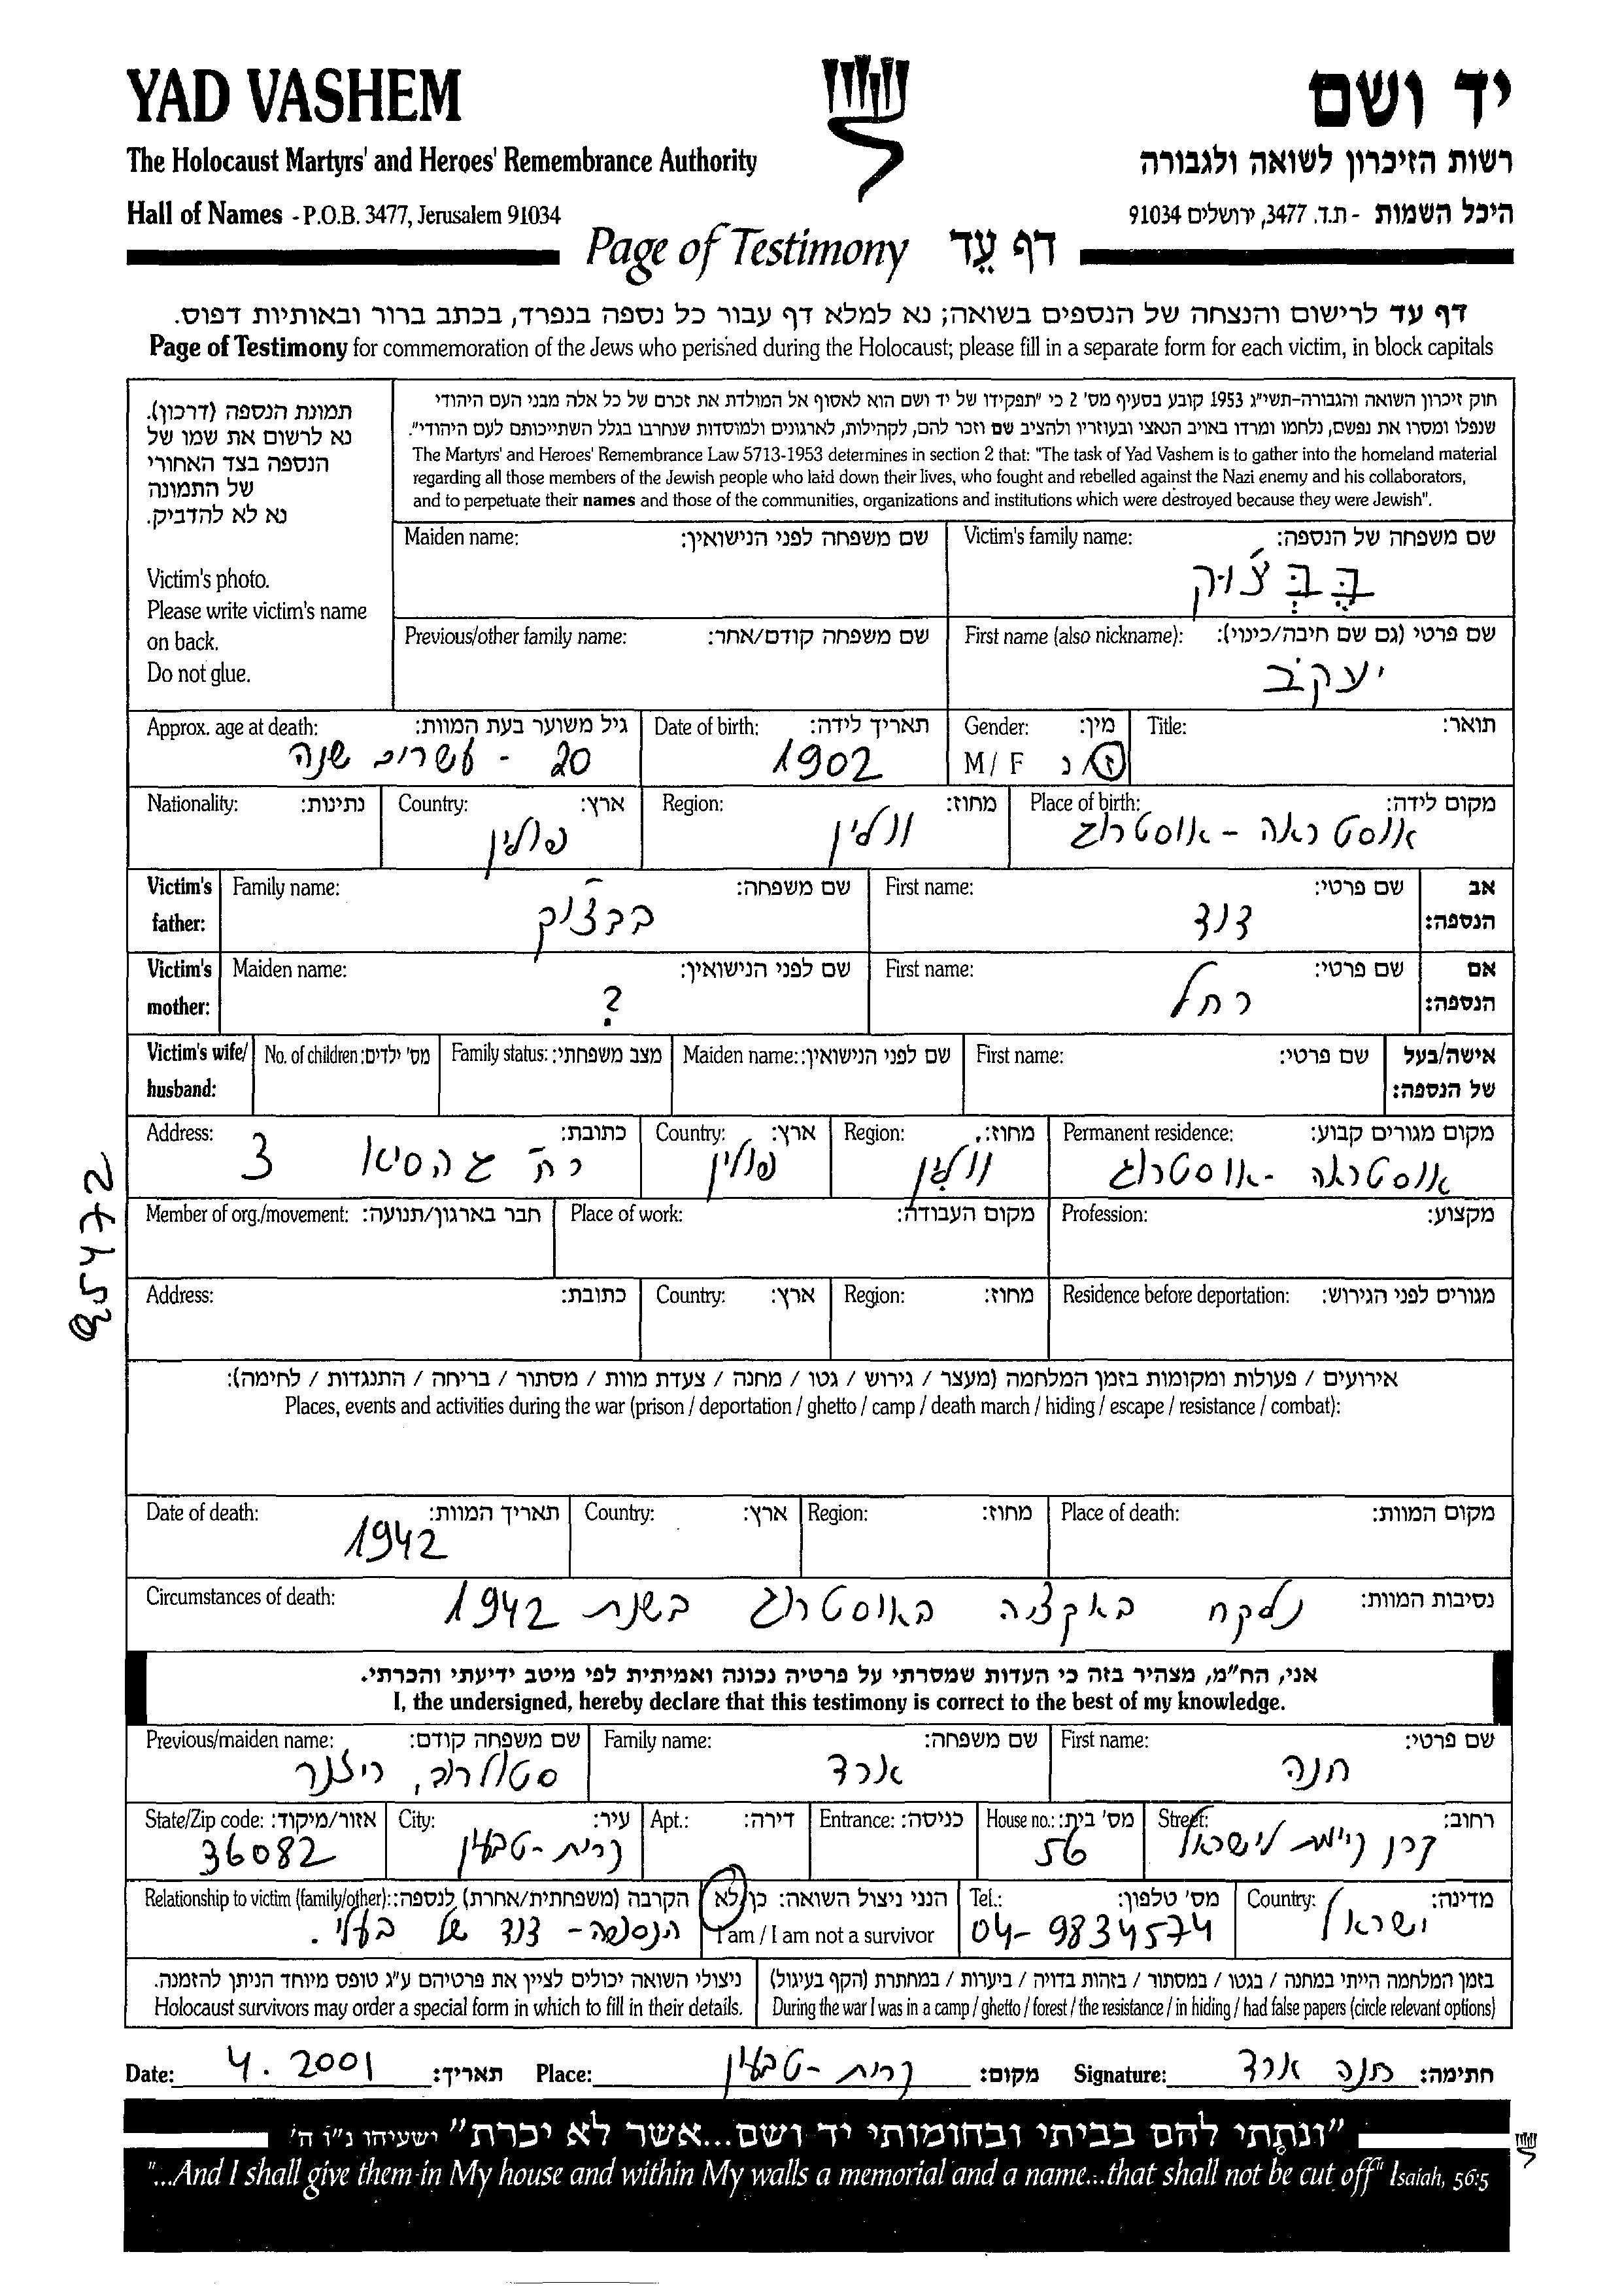 YAD VASHEM
יד ושם
The Holocaust Martyrs' and Heroes' Remembrance Authority
רשות הזיכרון לשואה ולגבורה
Hall of Names - P.O.B. 3477, Jerusalem 91034
היכל השמות - ת.ד. 3477, ירושלים 91034
Page of Testimony דף עֵד
דף עד לרישום והנצחה של הנספים בשואה; נא למלא דף עבור כל נספה בנפרד, בכתב ברור ובאותיות דפוס.
Page of Testimony for commemoration of the Jews who perished during the Holocaust; please fill in a separate form for each victim, in block capitals
תמונת הנספה (דרכון).
נא לרשום את שמו של
הנספה בצד האחורי
של התמונה
נא לא להדביק.
Victim's photo.
Please write victim's name
on back.
Do not glue.
חוק זיכרון השואה והגבורה-תשי"ג 1953 קובע בסעיף מס' 2 כי "תפקידו של יד ושם הוא לאסוף אל המולדת את זכרם של כל אלה מבני העם היהודי
שנפלו ומסרו את נפשם, נלחמו ומרדו באויב הנאצי ובעוזריו ולהציב שם וזכר להם, לקהילות, לארגונים ולמוסדות שנחרבו בגלל השתייכותם לעם היהודי".
The Martyrs' and Heroes' Remembrance Law 5713-1953 determines in section 2 that: "The task of Yad Vashem is to gather into the homeland material
regarding all those members of the Jewish people who laid down their lives, who fought and rebelled against the Nazi enemy and his collaborators,
and to perpetuate their names and those of the communities, organizations and institutions which were destroyed because they were Jewish".
Maiden name: שם משפחה לפני הנישואין:
Victim's family name: שם משפחה של הנספה:
בֶּבְּצ'וּק
Previous/other family name: שם משפחה קודם/אחר:
First name (also nickname): שם פרטי (גם שם חיבה/כינוי):
יעקב
Approx. age at death: גיל משוער בעת המוות:
20 - עשרים שנה
Date of birth: תאריך לידה:
1902
Gender: מין:
M / F ז/נ
Title: תואר:
Nationality: נתינות:
Country: ארץ:
פולין
Region: מחוז:
וולין
Place of birth: מקום לידה:
אוסטראה - אוסטרוג
Victim's father: אב הנספה:
Family name: שם משפחה:
בבצ'וק
First name: שם פרטי:
דוד
Victim's mother: אם הנספה:
Maiden name: שם לפני הנישואין:
?
First name: שם פרטי:
רחל
Victim's wife/husband: אישה/בעל של הנספה:
No. of children: מס' ילדים:
Family status: מצב משפחתי:
Maiden name: שם לפני הנישואין:
First name: שם פרטי:
Address: כתובת:
רח' 3
Country: ארץ:
פולין
Region: מחוז:
וולין
Permanent residence: מקום מגורים קבוע:
אוסטראה - אוסטרוג
Member of org./movement: חבר בארגון/תנועה:
Place of work: מקום העבודה:
Profession: מקצוע:
Address: כתובת:
Country: ארץ:
Region: מחוז:
Residence before deportation: מגורים לפני הגירוש:
אירועים / פעולות ומקומות בזמן המלחמה (מעצר / גירוש / גטו / מחנה / צעדת מוות / מסתור / בריחה / התנגדות / לחימה):
Places, events and activities during the war (prison / deportation / ghetto / camp / death march / hiding / escape / resistance / combat):
Date of death: תאריך המוות:
1942
Country: ארץ:
Region: מחוז:
Place of death: מקום המוות:
Circumstances of death: נסיבות המוות:
נלקח באקציה באוסטרוג בשנת 1942
אני, הח"מ, מצהיר בזה כי העדות שמסרתי על פרטיה נכונה ואמיתית לפי מיטב ידיעתי והכרתי.
I, the undersigned, hereby declare that this testimony is correct to the best of my knowledge.
Previous/maiden name: שם משפחה קודם:
סטולרוב, ריזנר
Family name: שם משפחה:
ארד
First name: שם פרטי:
חנה
State/Zip code: אזור/מיקוד:
36082
City: עיר:
קרית-טבעון
Apt.: דירה:
Entrance: כניסה:
House no.: מס' בית:
56
Street: רחוב:
קרן קיימת לישראל
Relationship to victim (family/other): הקרבה (משפחתית/אחרת) לנספה:
הנספה - דוד של בעלי.
הנני ניצול השואה: כן/לא
I am / I am not a survivor
Tel.: מס' טלפון:
04-9834574
Country: מדינה:
ישראל
ניצולי השואה יכולים לציין את פרטיהם ע"ג טופס מיוחד הניתן להזמנה.
Holocaust survivors may order a special form in which to fill in their details.
בזמן המלחמה הייתי במחנה / בגטו / במסתור / בזהות בדויה / ביערות / במחתרת (הקף בעיגול)
During the war I was in a camp / ghetto / forest / the resistance / in hiding / had false papers (circle relevant options)
Date: 4. 2001 תאריך: Place: קרית-טבעון מקום: Signature: חנה ארד חתימה:
"ונתתי להם בביתי ובחומותי יד ושם...אשר לא יכרת" ישעיהו נ"ו ה'
"...And I shall give them in My house and within My walls a memorial and a name...that shall not be cut off" Isaiah, 56:5
95472